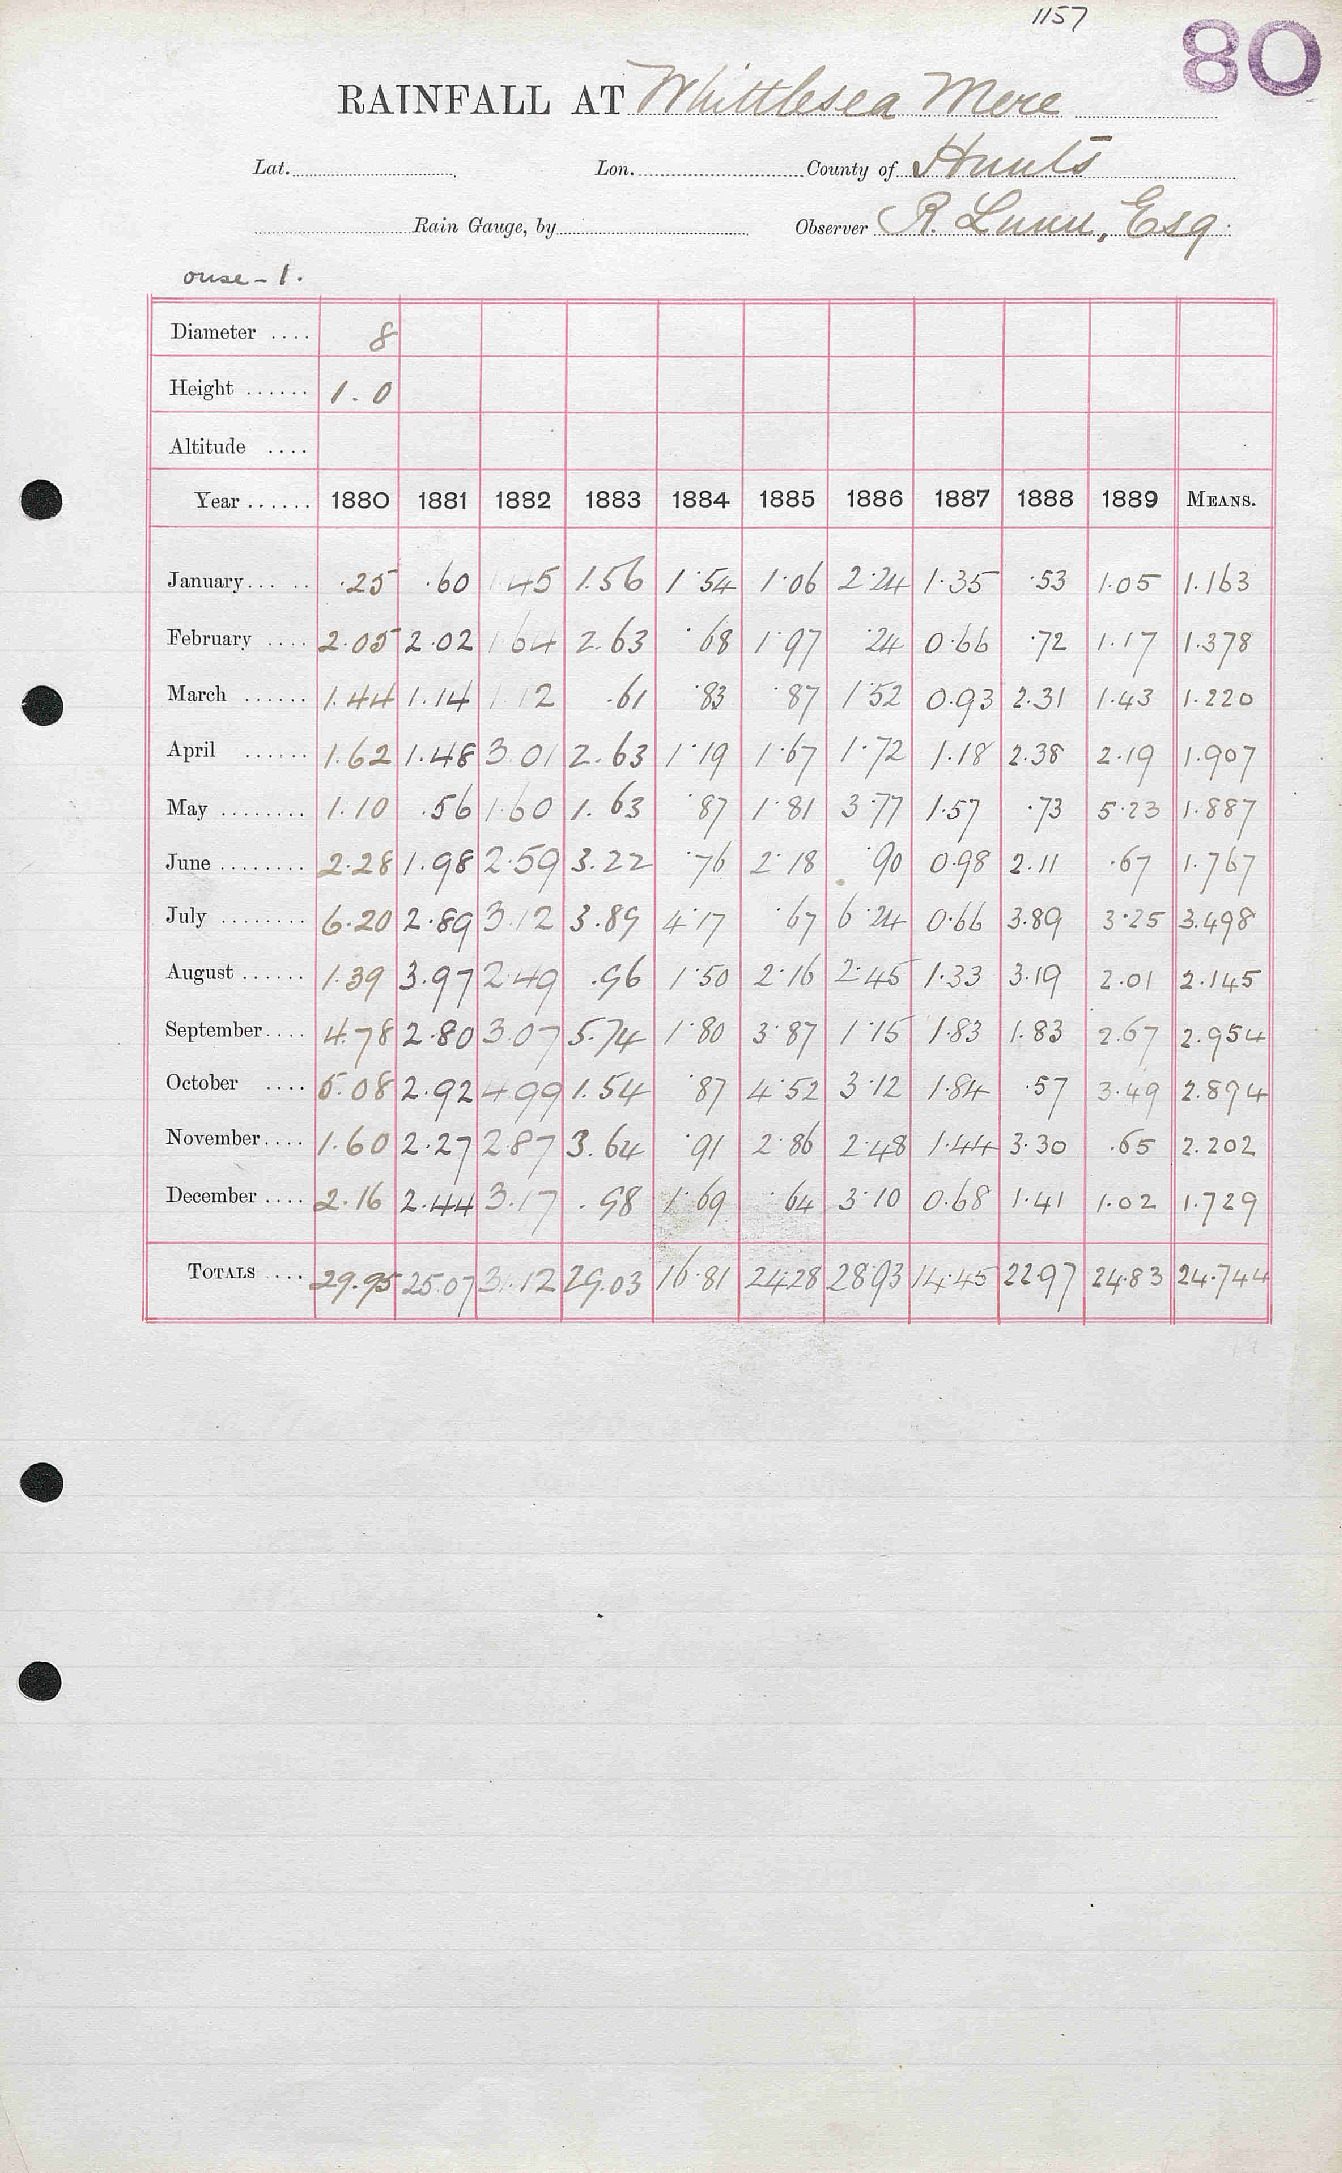 1157
80
RAINFALL AT Whittlesea Mere
Lat. Lon. County of Hunts
Rain Gauge, by Observer R. Lunn, Esq.
ouse - 1.
Diameter .... 8
Height ...... 1.0
Altitude ....
Year ...... 1880 1881 1882 1883 1884 1885 1886 1887 1888 1889 MEANS.
January...... .25 .60 1.45 1.56 1.54 1.06 2.24 1.35 .53 1.05 1.163
February .... 2.05 2.02 1.64 2.63 .68 1.97 .24 0.66 .72 1.17 1.378
March ...... 1.44 1.14 1.12 .61 .83 .87 1.52 0.93 2.31 1.43 1.220
April ...... 1.62 1.48 3.01 2.63 1.19 1.67 1.72 1.18 2.38 2.19 1.907
May ........ 1.10 .56 1.60 1.63 .87 1.81 3.77 1.57 .73 5.23 1.887
June ........ 2.28 1.98 2.59 3.22 .76 2.18 .90 0.98 2.11 .67 1.767
July ........ 6.20 2.89 3.12 3.89 4.17 .67 6.24 0.66 3.89 3.25 3.498
August ...... 1.39 3.97 2.49 .96 1.50 2.16 2.45 1.33 3.19 2.01 2.145
September.... 4.78 2.80 3.07 5.74 1.80 3.87 1.15 1.83 1.83 2.67 2.954
October .... 5.08 2.92 4.99 1.54 .87 4.52 3.12 1.84 .57 3.49 2.894
November.... 1.60 2.27 2.87 3.64 .91 2.86 2.48 1.44 3.30 .65 2.202
December .... 2.16 2.44 3.17 .98 1.69 .64 3.10 0.68 1.41 1.02 1.729
TOTALS .... 29.95 25.07 31.12 29.03 16.81 24.28 28.93 14.45 22.97 24.83 24.744